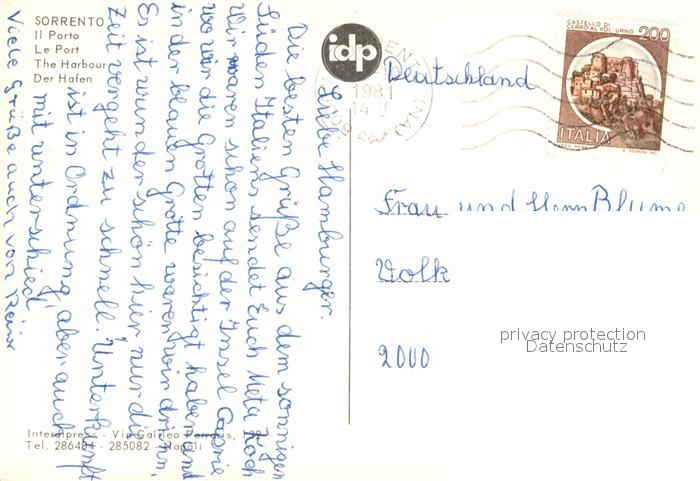 SORRENTO
Il Porto
Le Port
The Harbour
Der Hafen
idp
1981
14
CASTELLO DI
CERRO AL VOLTURNO 200
ITALIA
Deutschland
Frau und Herrn Blume
Volk
2000
privacy protection
Datenschutz
Liebe Hamburger.
Die besten Grüße aus dem sonnigen
Süden Italiens sendet Euch Meta Koch
Wir waren schon auf der Insel
wo wir die Grotten besichtigt haben und
in der blauen Grotte waren wir drinn.
Es ist wunderschön hier nur die
Zeit vergeht zu schnell. Unterkunft
ist in Ordnung, aber auch
mit unterschied
Viele Grüße auch von
Interdipress - Via Galileo
Tel. - 285082 - Napoli